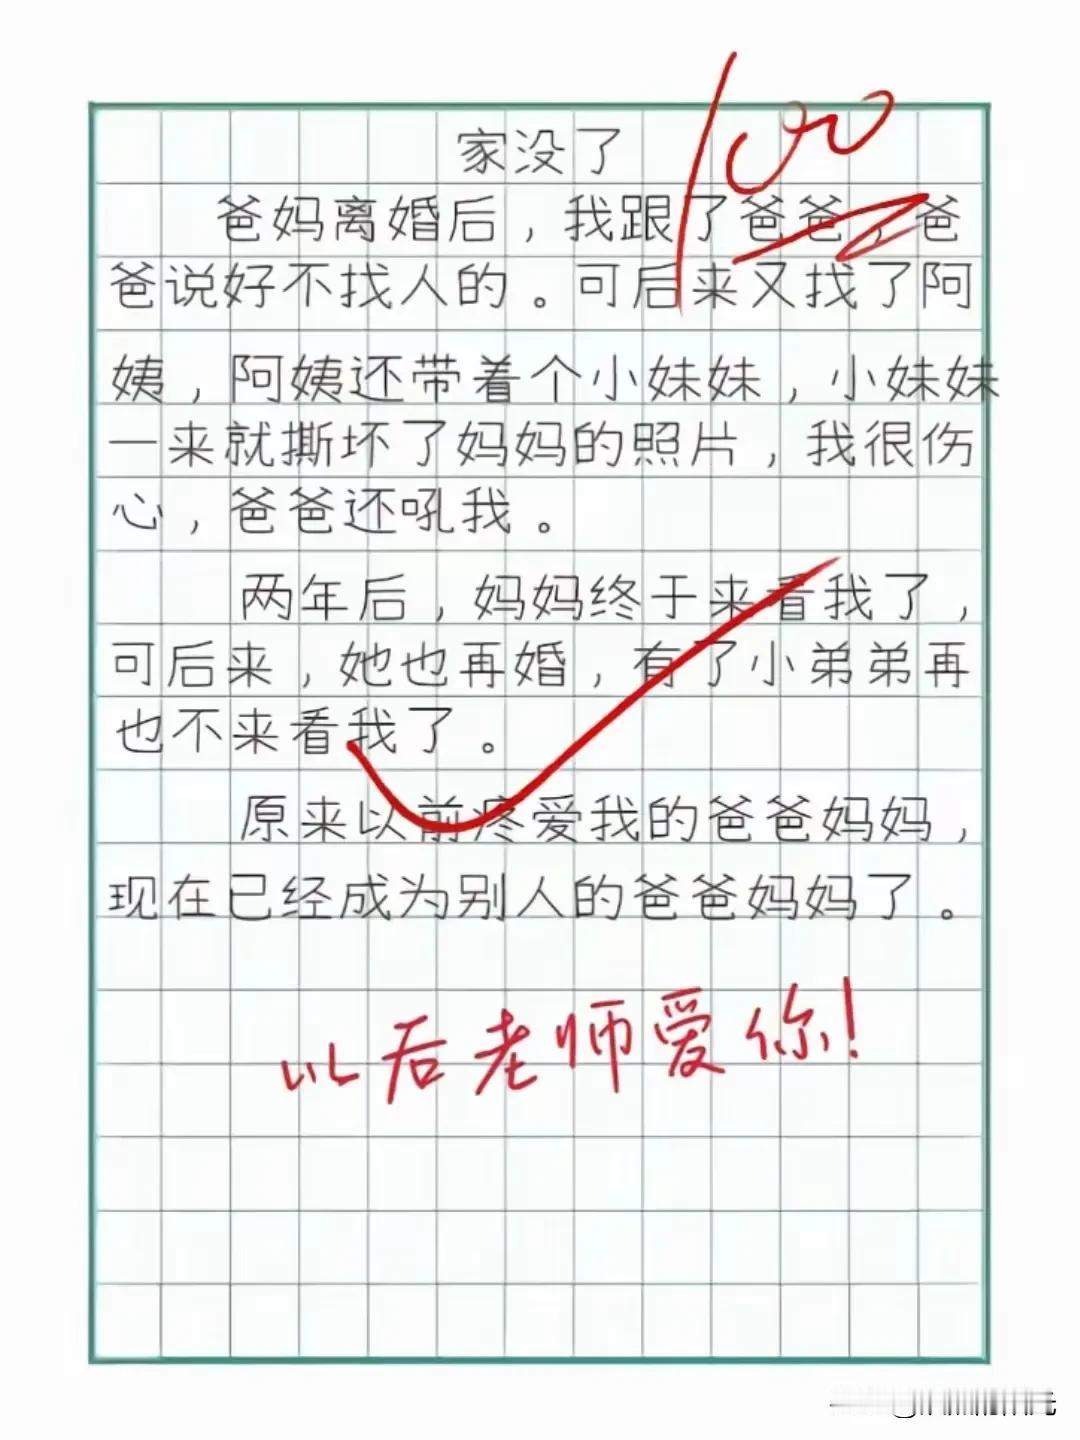 家没了
100
爸妈离婚后，我跟了爸爸，爸
爸说好不找人的。可后来又找了阿
姨，阿姨还带着个小妹妹，小妹妹
一来就撕坏了妈妈的照片，我很伤
心，爸爸还吼我。
两年后，妈妈终于来看我了，
可后来，她也再婚，有了小弟弟再
也不来看我了。
原来以前疼爱我的爸爸妈妈，
现在已经成为别人的爸爸妈妈了。
以后老师爱你！